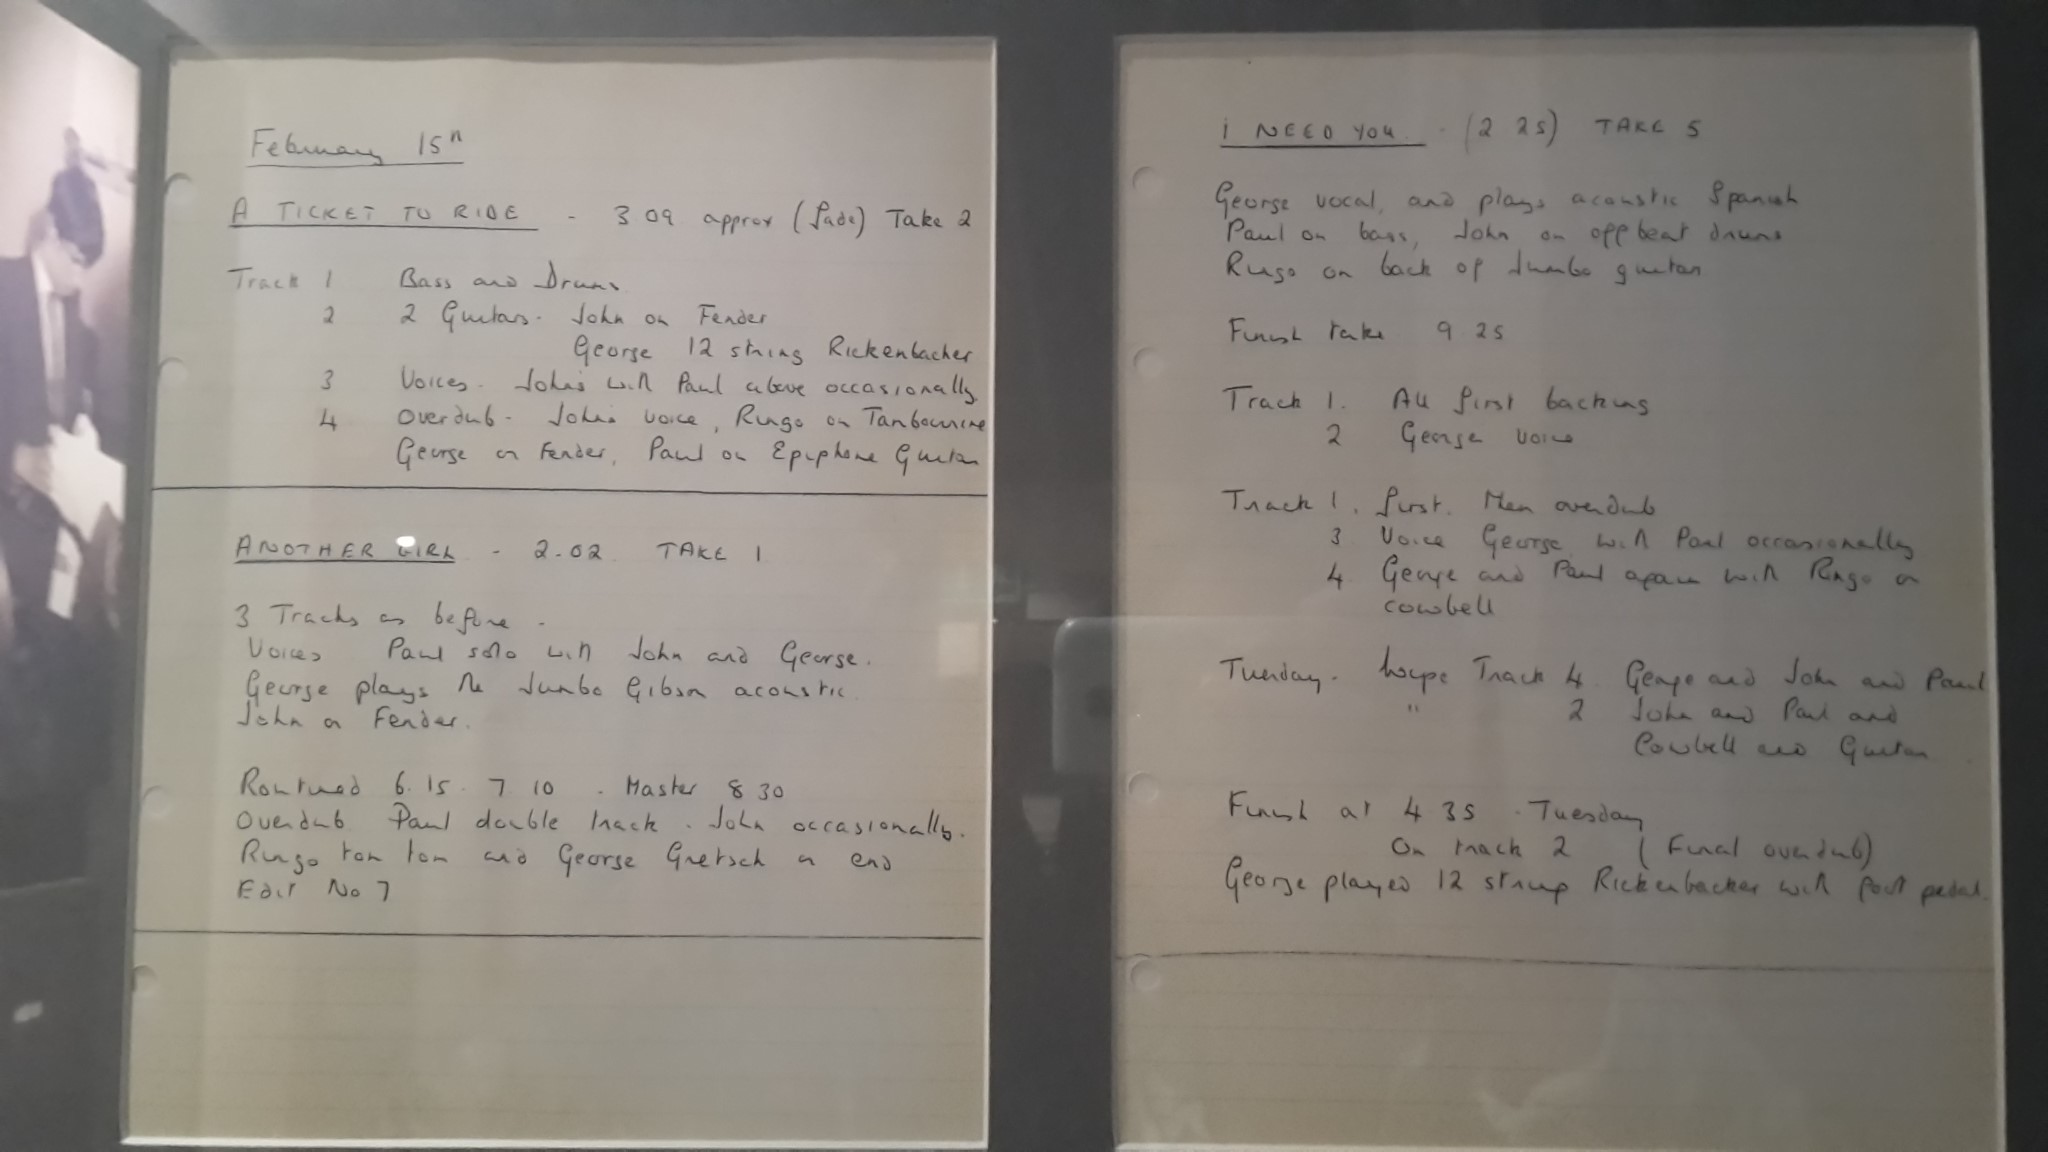 February 15th
A TICKET TO RIDE - 3.09 approx (fade) Take 2
Track 1 Bass and Drums
2 2 Guitars. John on Fender
George 12 string Rickenbacher
3 Voices. John's with Paul above occasionally
4 Overdub - John's voice, Ringo on Tambourine
George on Fender, Paul on Epiphone Guitar
ANOTHER GIRL - 2.02 TAKE 1
3 Tracks as before.
Voices Paul solo with John and George.
George plays the Jumbo Gibson acoustic
John on Fender.
Routined 6.15. 7 10 . Master 8 30
Overdub Paul double track. John occasionally.
Ringo tom tom and George Gretsch on end
Edit No 7
I NEED YOU. - (2 25) TAKE 5
George vocal, and plays acoustic Spanish
Paul on bass, John on offbeat drums
Ringo on back of Jumbo guitar
Finish take 9 25
Track 1. All first backing
2 George voice
Track 1. first. Then overdub
3 Voice George with Paul occasionally
4 George and Paul again with Ringo on
cowbell
Tuesday. Track 4 George and John and Paul
" 2 John and Paul and
Cowbell and Guitar
Finish at 4 35 . Tuesday
On track 2 (Final overdub)
George played 12 string Rickenbacker with foot pedal.